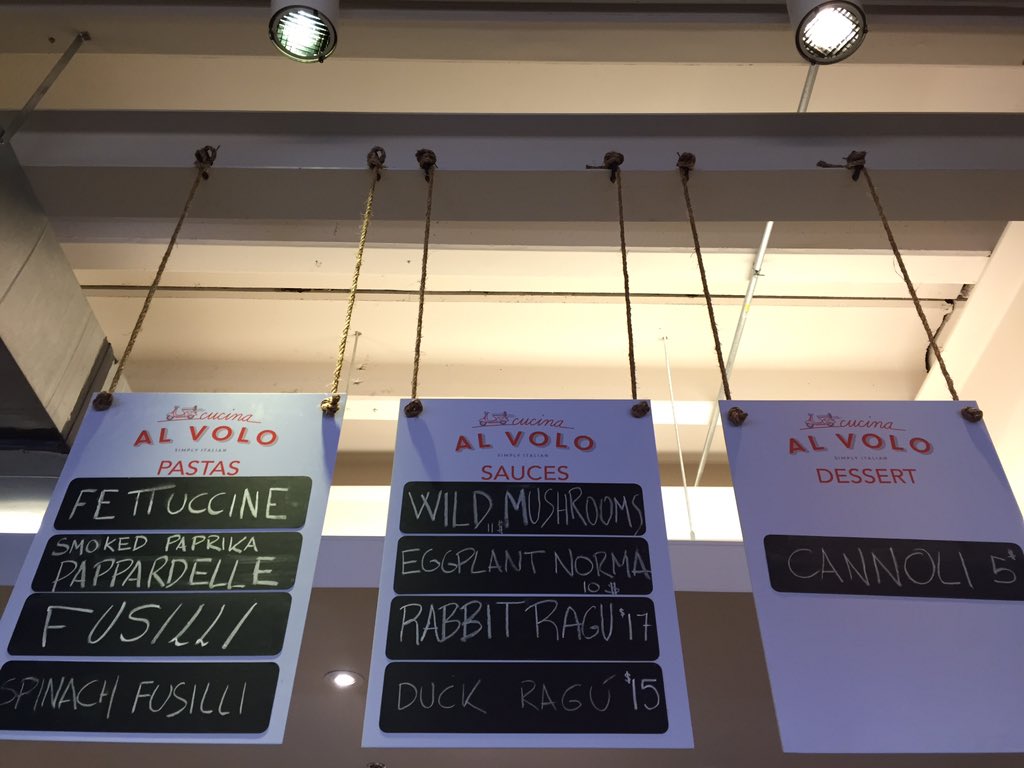 cucina
AL VOLO
SIMPLY ITALIAN
PASTAS
FETTUCCINE
SMOKED PAPRIKA
PAPPARDELLE
FUSILLI
SPINACH FUSILLI
cucina
AL VOLO
SIMPLY ITALIAN
SAUCES
WILD MUSHROOMS
11$
EGGPLANT NORMA
10 $
RABBIT RAGU $17
DUCK RAGÚ $15
cucina
AL VOLO
SIMPLY ITALIAN
DESSERT
CANNOLI 5$